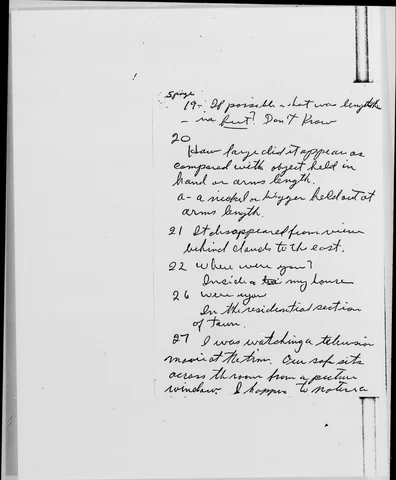 5 page
19- If possible what was length
- in feet? Don't Know
20
How large did it appear as
compared with object held in
hand or arms length.
a- a nickel or bigger held out at
arms length.
21 It disappeared from view
behind clouds to the east.
22 Where were you?
Inside my house
26 were you
In the residential section
of town.
27 I was watching a television
movie at the time. Our sofa sits
across the room from a picture
window. I happen to notice a